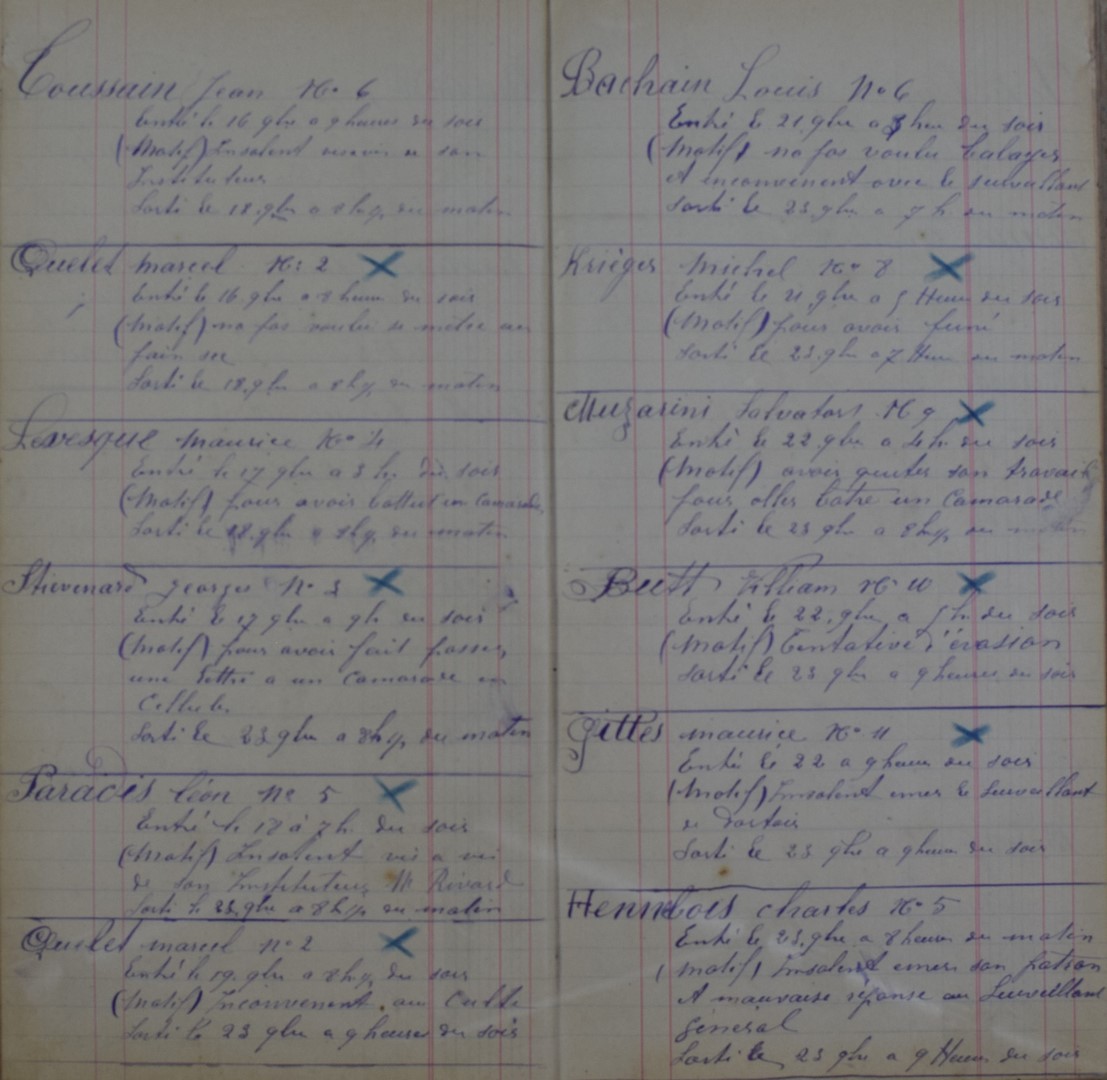 Toussain Jean No 6
Entré le 16 9bre a 9 heures du soir
(Motif) Insolent envers de son
Instituteur
Sorti le 18. 9bre a 8 h ½ du matin
Quelet marcel No 2
Entré le 16 9bre a 8 heures du soir
(Motif) na pas voulu se mettre au
pain sec
Sorti le 18. 9bre a 8 h ½ du matin
Levesque maurice No 4
Entré le 17 9bre a 3 h du soir
(Motif) pour avoir battut un Camarade
Sorti le 18. 9bre a 8 h ½ du matin
Stievenard georges No 3
Entré le 17 9bre a 9h du soir
(Motif) pour avoir fait passer
une lettre a un Camarade en
Cellule
Sorti le 23 9bre a 8h ½ du matin
Paradis léon No 5
Entré le 18 à 7 h du soir
(Motif) Insolent vis a vis
de son Instituteur Mr Rivard
Sorti le 23. 9bre a 8 h ½ du matin
Quelet marcel no 2
Entré le 19. 9bre a 8 h ½ du soir
(Motif) Inconvenent au Culte
Sorti le 23 9bre a 9 heures du soir
Bachain Louis No 6
Entré le 21 9bre a heu du soir
(Motif) na pas voulu balayer
et inconvenent avec le surveillant
Sorti le 23 9bre a 7 h du matin
Krièger Michel No 8
Entré le 21 9bre a 5 Heur du soir
(Motif) pour avoir fumé
Sorti le 23. 9bre a 7 Heur du matin
Muzarini Salvators No 9
Entré le 22 9bre a 4h du soir
(Motif) avoir quiter son travail
pour aller batre un Camarade
Sorti le 23 9bre a 8 h ½ du matin
Butt Villiam No 10
Entré le 22. 9bre a 5 h du soir
(Motif) Tentative d'évasion
Sorti le 23 9bre a 9 heures du soir
Gittes maurice No 11
Entré le 22 a 9 heures du soir
(Motif) Insolent enver le Surveillant
de Dortoir
Sorti le 23 9bre a 9 heures du soir
Hennebois charles No 5
Entré le 23. 9bre a 8 heures du matin
(Motif) Insolent enver son patron
et mauvaise réponse au Surveillant
général
Sorti le 23 9bre a 9 Heures du soir